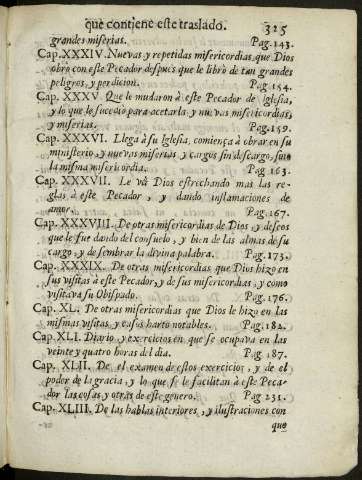 que contiene este traslado. 325
grandes miserias. Pag.143.
Cap. XXXIV. Nuevas, y repetidas misericordias que Dios
obrò con este Pecador despues que le librò de tan grandes
peligros, y perdicion. Pag.154.
Cap. XXXV. Que le mudaron à este Pecador de Iglesia,
y lo que le sucediò para acetarla, y nuevas misericordias,
y miserias. Pag.159.
Cap. XXXVI. Llega à su Iglesia, comiença à obrar en su
ministerio, y nuevas miserias, y cargos sin descargo, son
la misma misericordia. Pag. 163.
Cap. XXXVII. Le và Dios estrechando mas las re-
glas à este Pecador, y dando inflamaciones de
amor. Pag.167.
Cap. XXXVIII. De otras misericordias de Dios, y deseos
que le fue dando del consuelo, y bien de las almas de su
cargo, y de sembrar la divina palabra. Pag.173.
Cap. XXXIX. De otras misericordias que Dios hizo en
sus visitas à este Pecador, y de sus miserias, y como
visitava su Obispado. Pag.176.
Cap. XL. De otras misericordias que Dios le hizo en las
mismas visitas, y casos harto notables. Pag.182.
Cap. XLI. Diario, y exercicios en que se ocupava en las
veinte y quatro horas del dia. Pag. 187.
Cap. XLII. De el examen de estos exercicios, y de el
poder de la gracia, y lo que se le facilitan à este Peca-
dor las cosas, y otras de este genero. Pag. 231.
Cap. XLIII. De las hablas interiores, y ilustraciones con
que